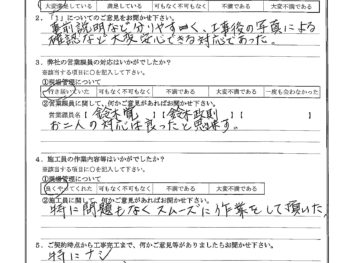 大変満足している 満足している 可も不可もなく 不満である 大変不満である
2.「1」についてのご意見をお聞かせ下さい。
事前説明など分りやすく、工事後の写真による
確認など大変安心できる対応であった。
3. 弊社の営業課員の対応はいかがでしたか？
※該当する項目に○を記入して下さい。
①現場管理について
行き届いていた 可も不可もなく 不満である 大変不満である 一度も会わなかった
②営業課員に関して、何かご意見があればお聞かせ下さい。
営業課員名 【鈴木 】【鈴木政則】【 】
お二人の対応は良ったと思ます。
4. 施工員の作業内容等はいかがでしたか？
※該当する項目に○を記入して下さい。
①現場管理について
良くやってくれた 可も不可もなく 不満である 大変不満である
②施工員に関して、何かご意見があればお聞かせ下さい。
特に問題もなくスムーズに作業をして頂いた。
5. ご契約時点から工事完工まで、何かご意見等がありましたらお聞かせ下さい。
特にナシ